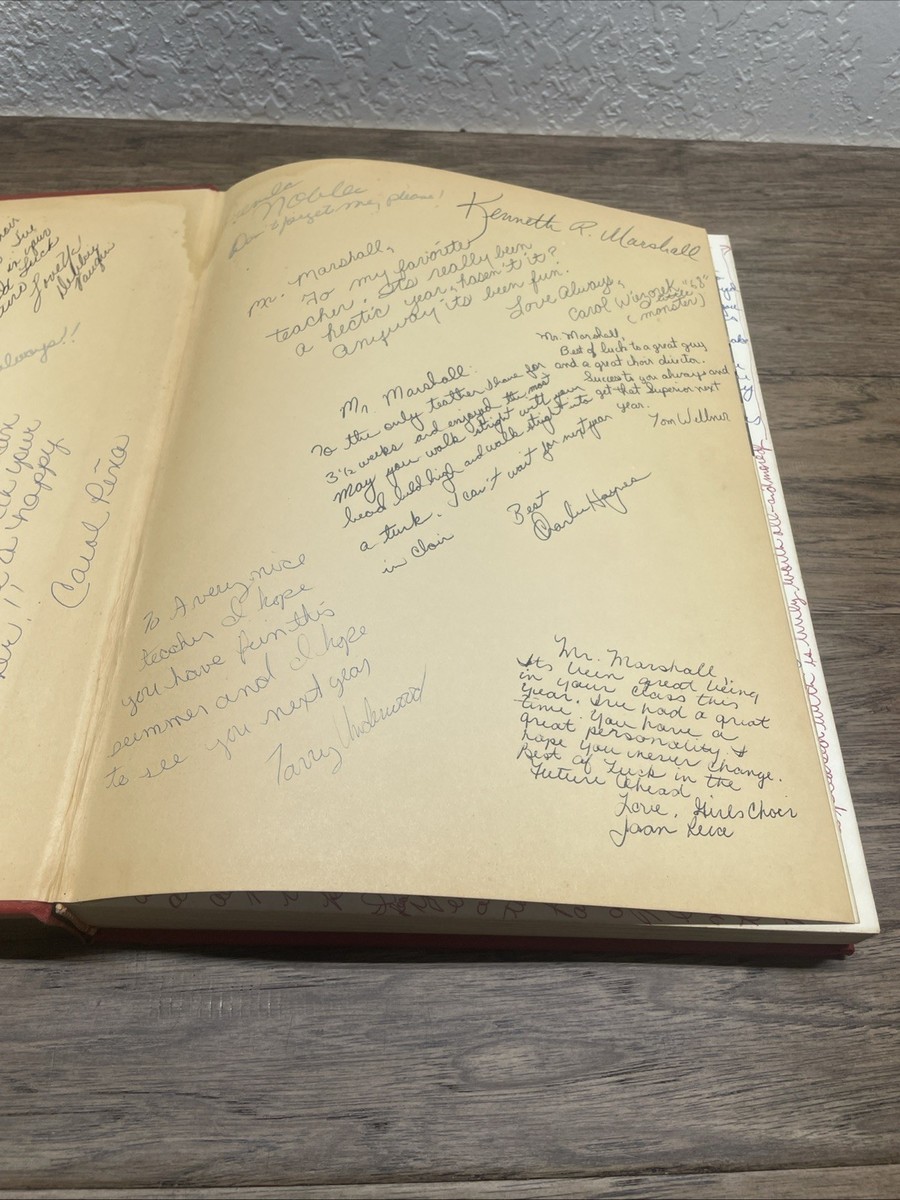 Love Ya
Debbey
always!!
your
happy
Carol Peña
Noble
Don't forget me, please!
Kenneth R. Marshall
Mr. Marshall,
To my favorite
teacher. It's really been
a hectic year, hasn't it?
Anyway it's been fun.
Love Always,
Carol
(monster)
Mr. Marshall
Best of luck to a great guy
and a great choir director.
Success to you always and
get that Superior next
year.
Tom Wellner
Mr. Marshall.
To the only teather I have for
3½ weeks and enjoyed the most
May you walk stright with your
head held high and walk stright into
a turk. I can't wait for next year
in Choir
Best
Charlie Haynes
To A very nice
teacher I hope
you have fun this
summer and I hope
to see you next year
Tarry Underwood
Mr. Marshall,
Its been great being
in your class this
year. I've had a great
time. You have a
great personality. I
hope you never change.
Best of Luck in the
Future Ahead
Love, Girls Choir
Joan
with is truly worth